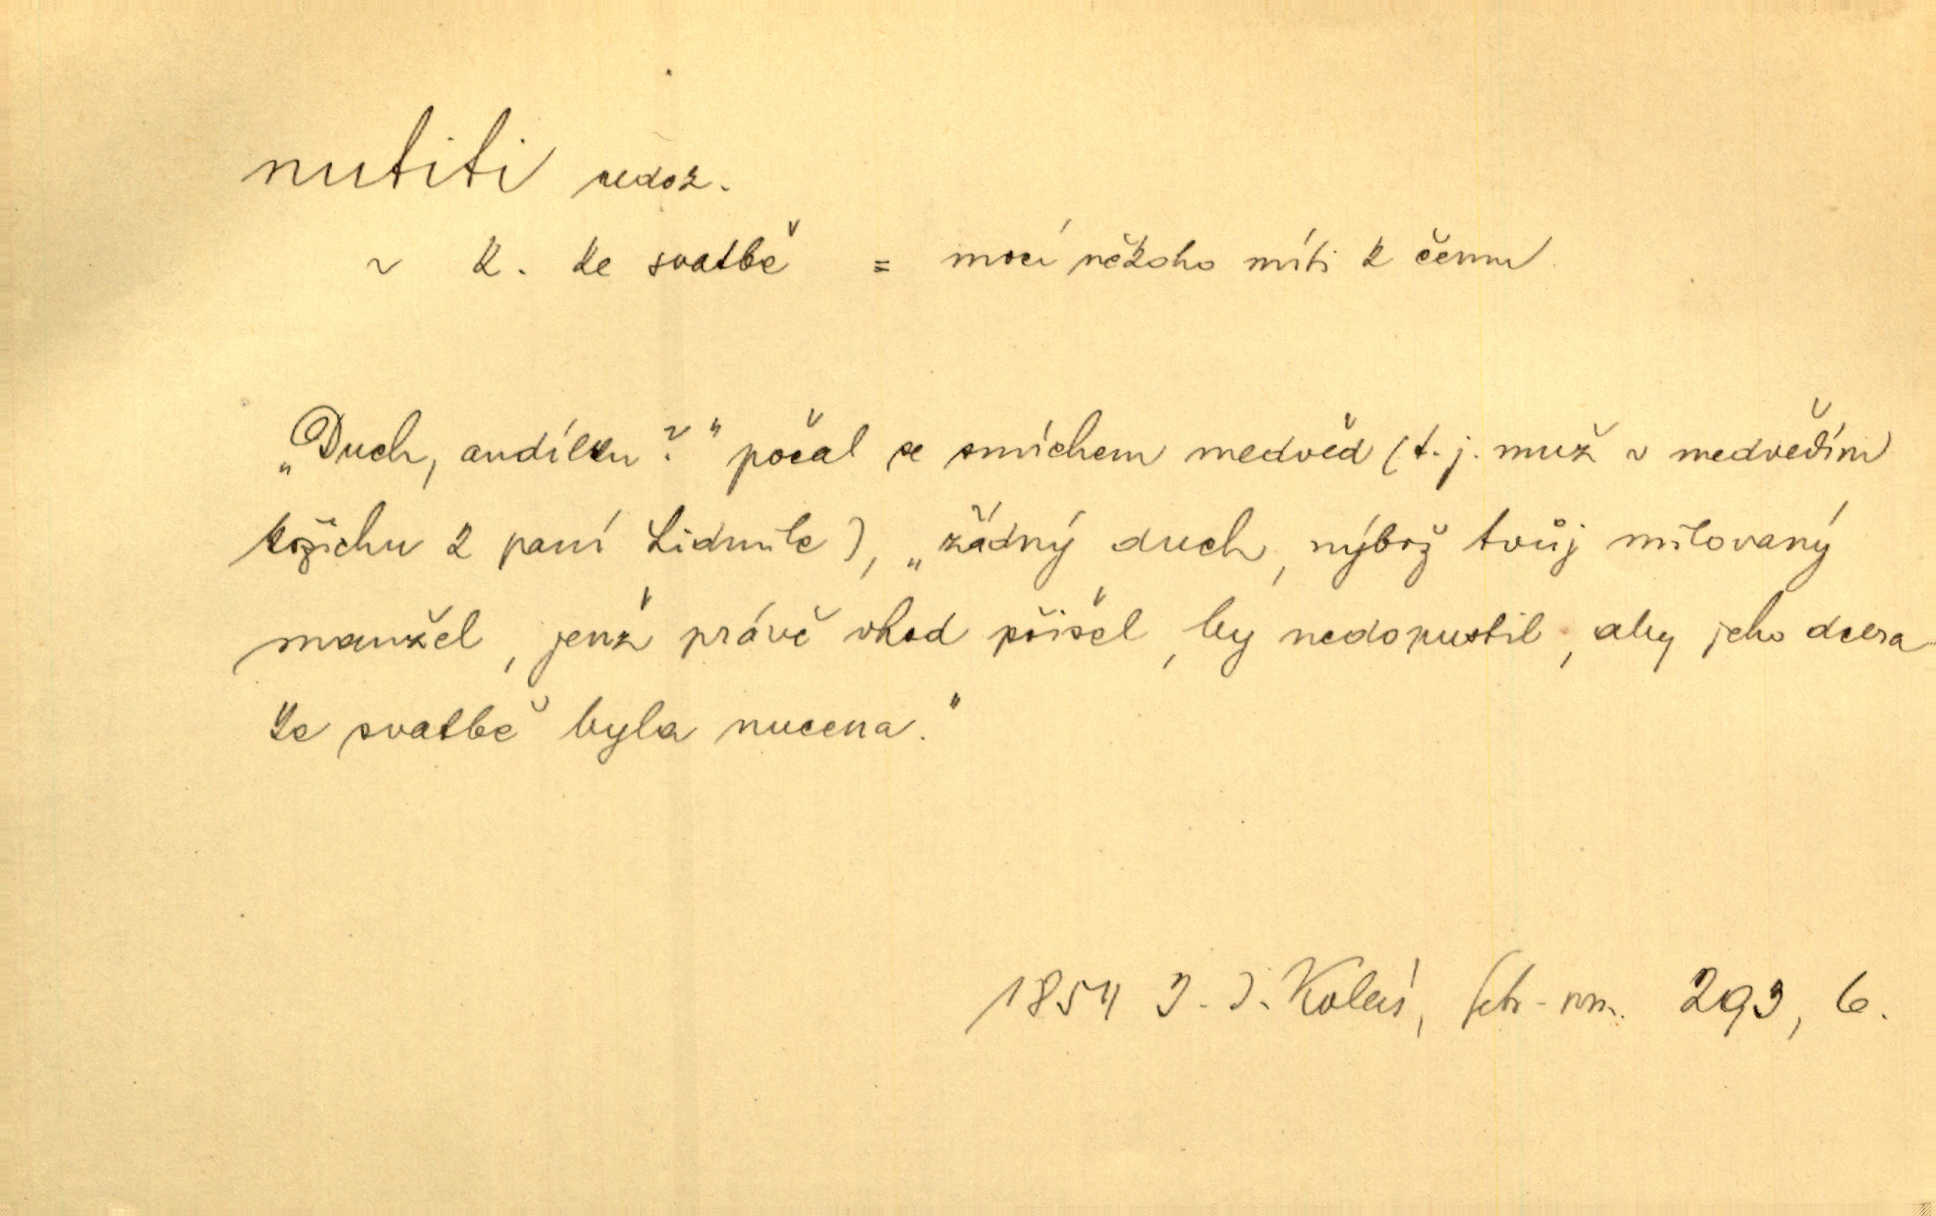 nutiti nedok.
~ k. ke svatbě = mocí někoho míti k čemu
„Duch, andílku?“ počal se smíchem medvěd (t. j. muž v medvědím
kožichu k paní Lidmile), „žádný duch, nýbrž tvůj milovaný
manžel, jenž právě vhod přišel, by nedopustil, aby jeho dcera
ke svatbě byla nucena.“
1854 J. J. Kolár, 293, 6.